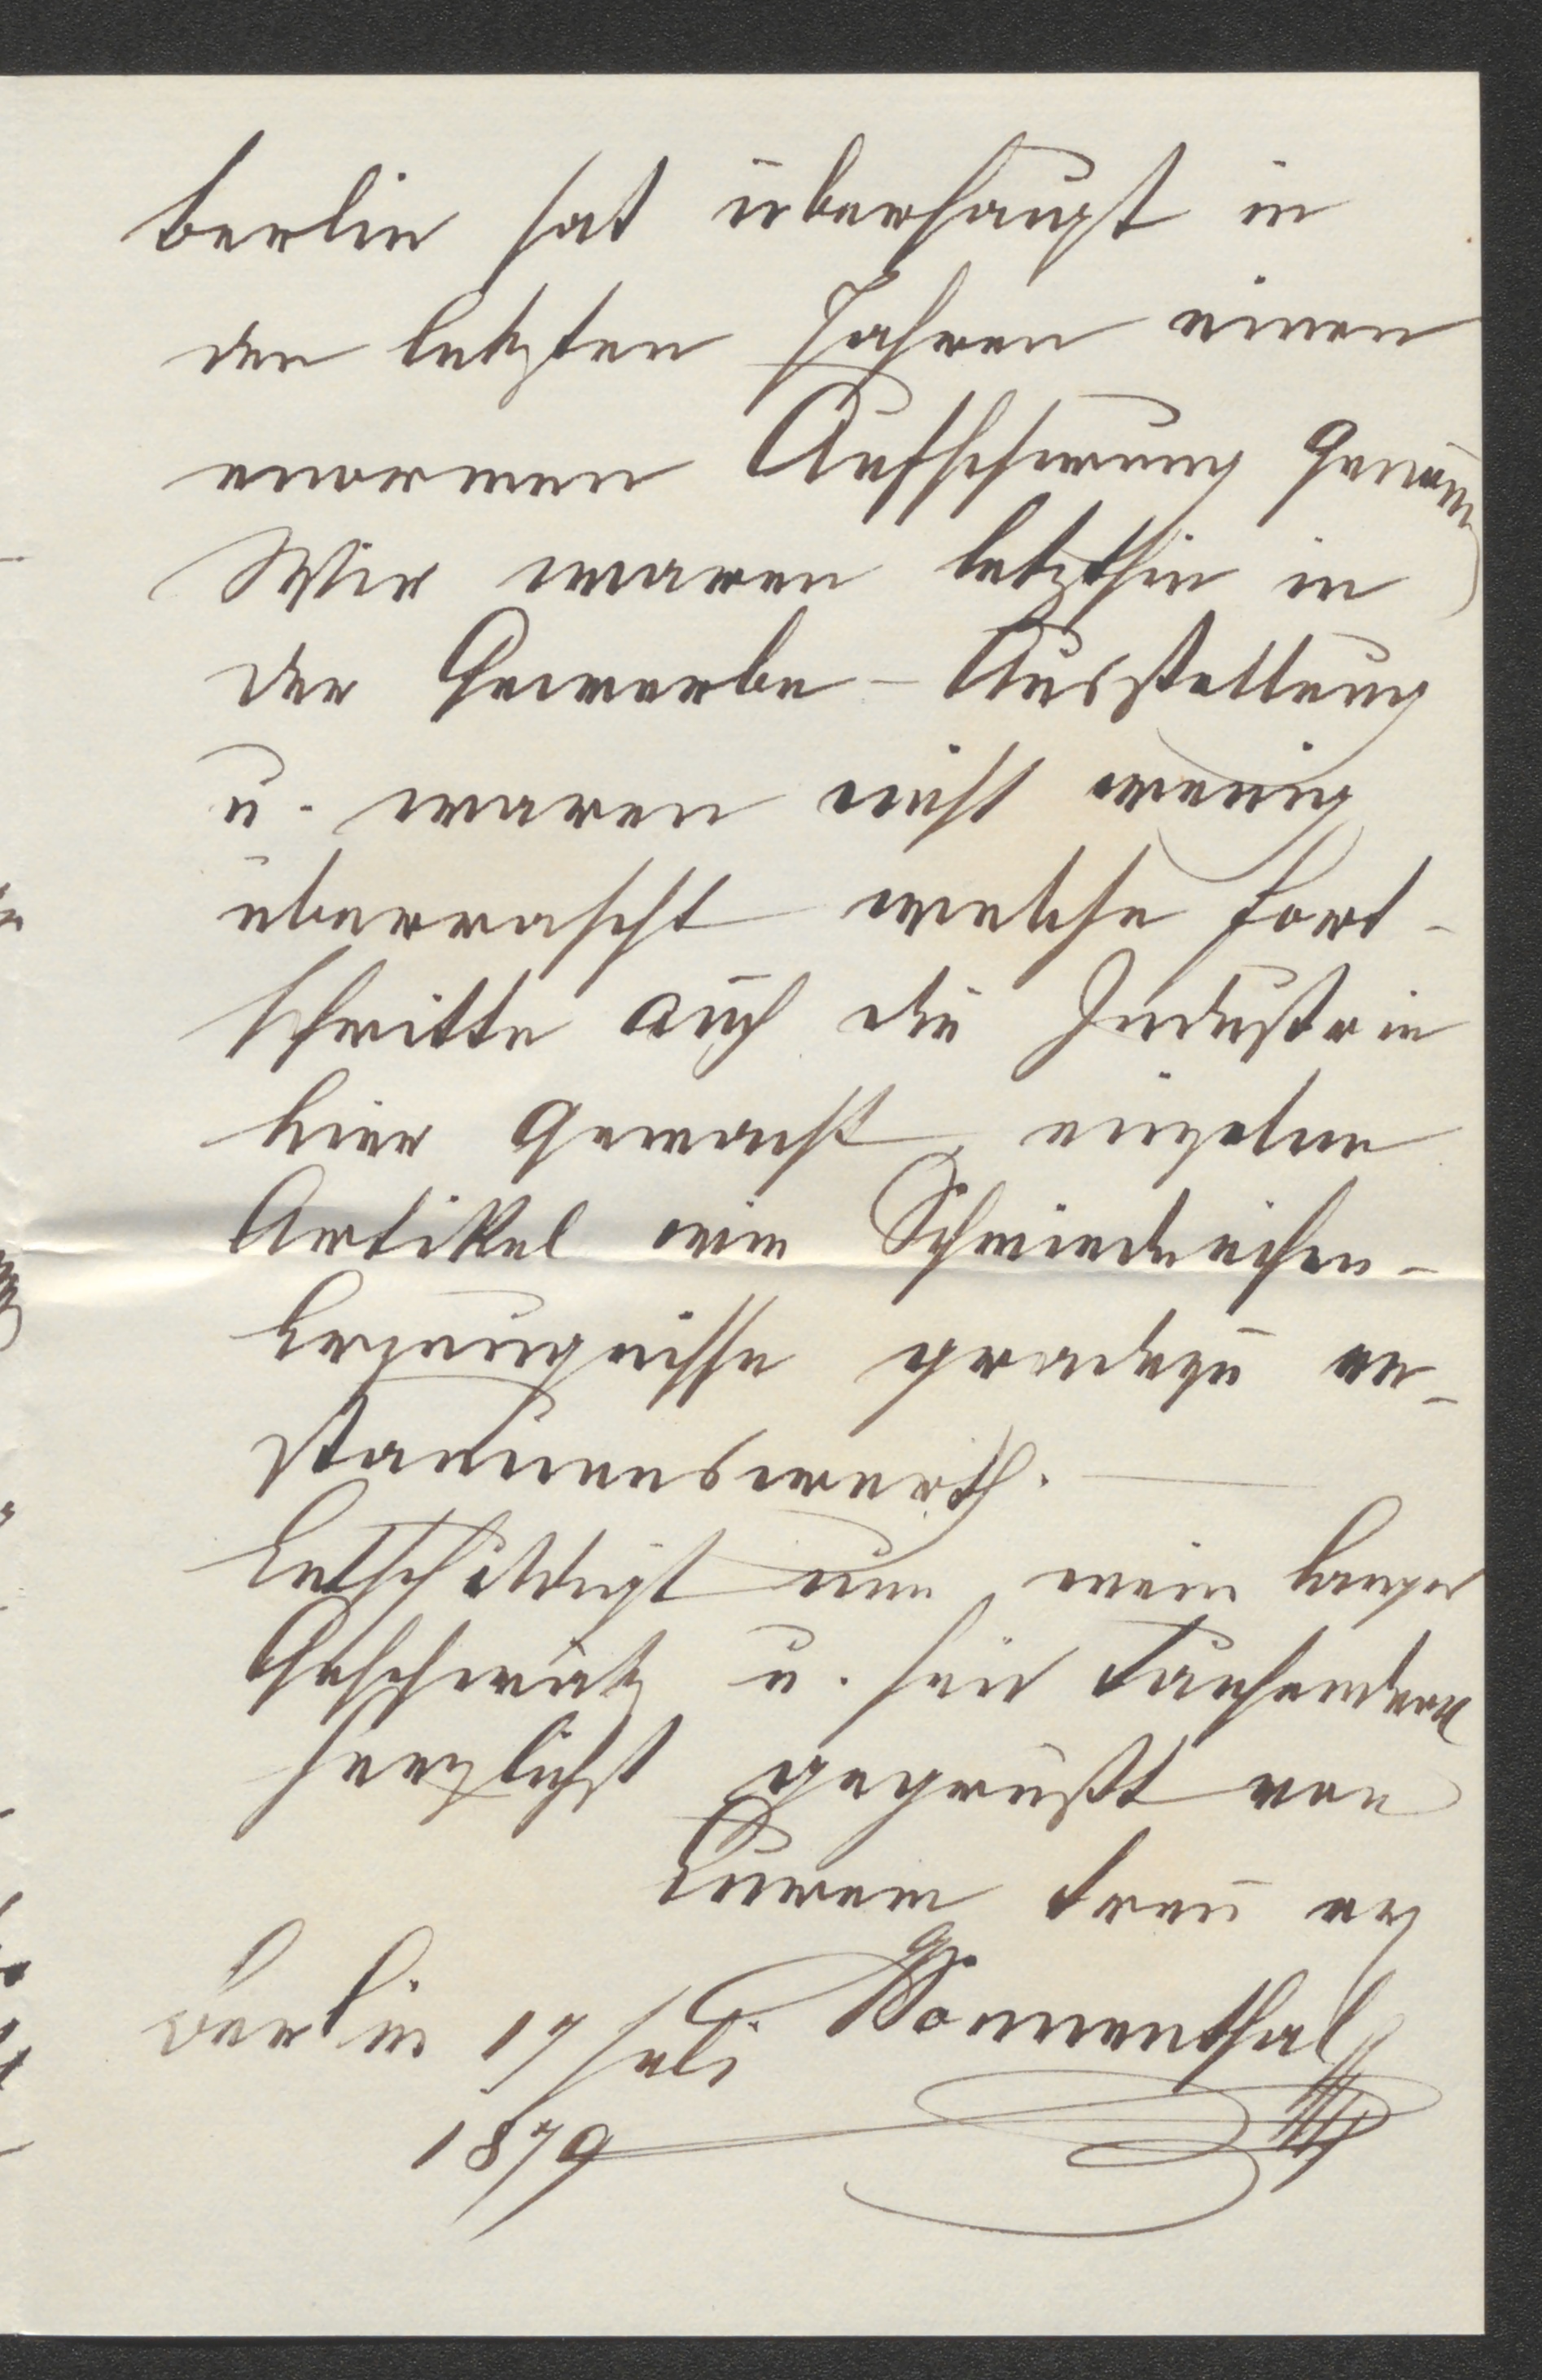 Berlin hat überhaupt in
den letzten Jahren einen
enormen Aufschwung genom̄en
Wir waren letzthin in
der Gewerbe-Ausstellung
u. waren nicht wenig
überrascht welche Fort-
schritte auch die Industrie
hier gemacht, einzelne
Artikel wie Schmiedeeisen-
Erzeugnisse gradezu er-
staunenswerth. —
Entschuldigt nun mein langes
Geschwätz u. seid tausendmal
herzlichst gegrüßt von
Eurem treu erg
Sonnenthal
Berlin 17 Juli
1879